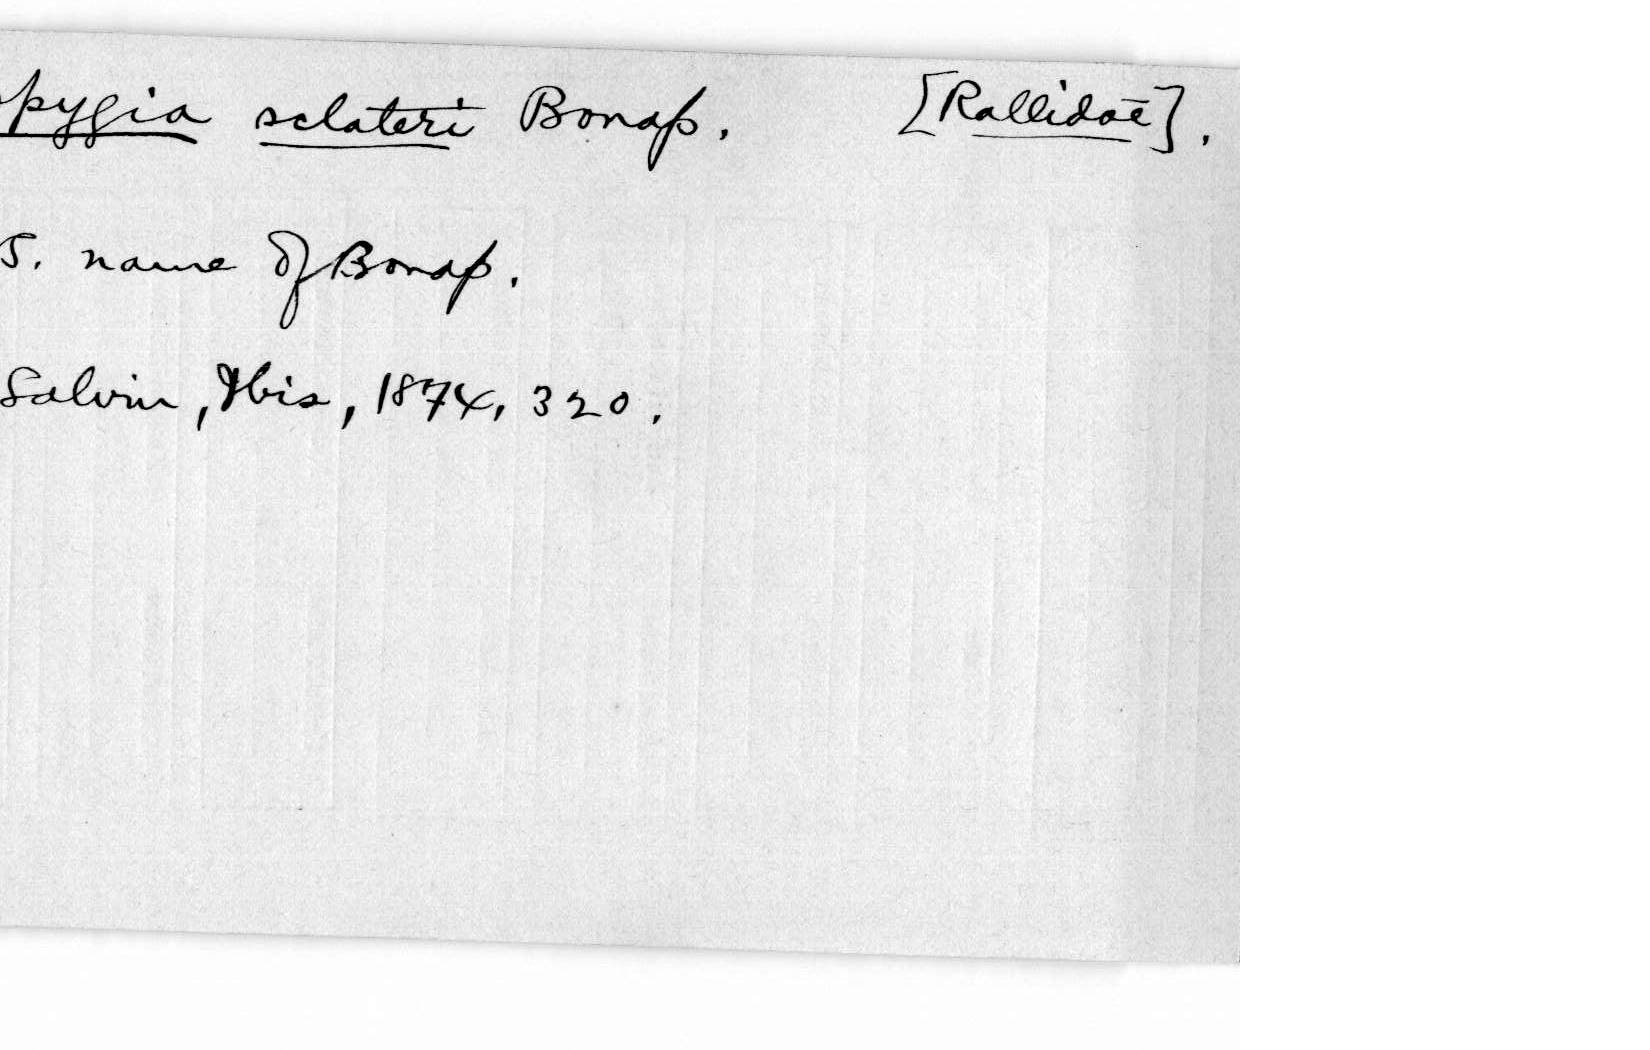 pygia sclateri Bonap. [Rallidae].
S. name of Bonap.
Salvin, Ibis, 1874, 320.